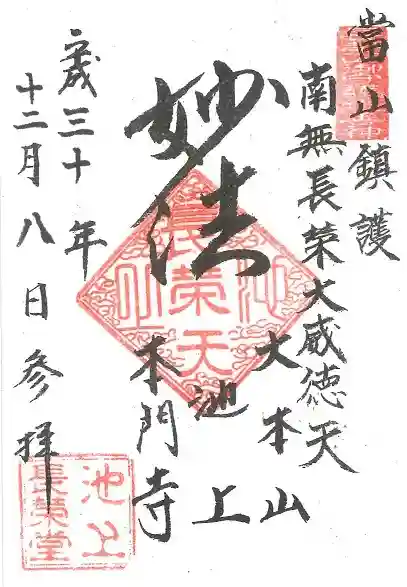 當山鎮護
南無長榮大威徳天
妙法
大本山
池上
本門寺
平成三十年
十二月八日参拝
長榮天
池上
池上
長榮堂